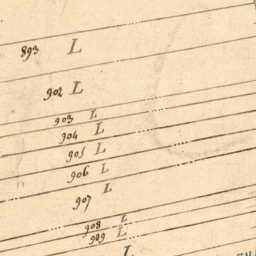 893 L
902 L
903 L
904 L
905 L
906 L
907 L
908 L
909 L
L